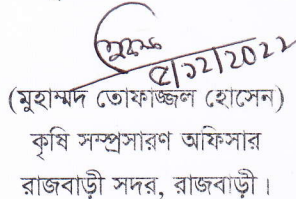 ৫/১২/2022
(মুহাম্মদ তোফাজ্জল হোসেন)
কৃষি সম্প্রসারণ অফিসার
রাজবাড়ী সদর, রাজবাড়ী।